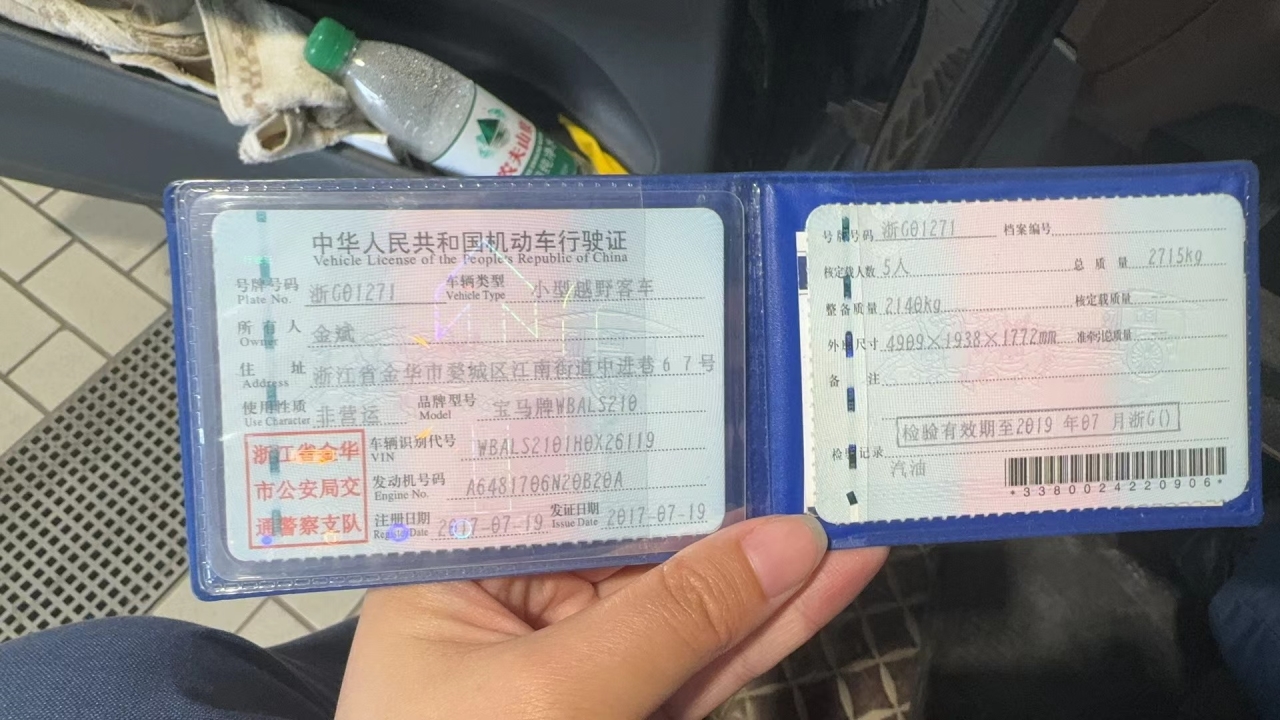 农夫山泉
中华人民共和国机动车行驶证
Vehicle License of the People's Republic of China
号牌号码 浙G01271 车辆类型 小型越野客车
Plate No. Vehicle Type
所有人 金斌
Owner
住址 浙江省金华市婺城区江南街道中进巷67号
Address
使用性质 非营运 品牌型号 宝马牌WBALS210
Use Character Model
浙江省金华
市公安局交
通警察支队
车辆识别代号 WBALS2101H0X26119
VIN
发动机号码 A6481706N20B20A
Engine No.
注册日期 2017-07-19 发证日期 2017-07-19
Register Date Issue Date
号牌号码 浙G01271 档案编号
核定载人数 5人 总质量 2715kg
整备质量 2140kg 核定载质量
外廓尺寸 4909×1938×1772mm 准牵引总质量
备注
检验有效期至2019 年07 月浙G()
检验记录
汽油
*3380024220906*